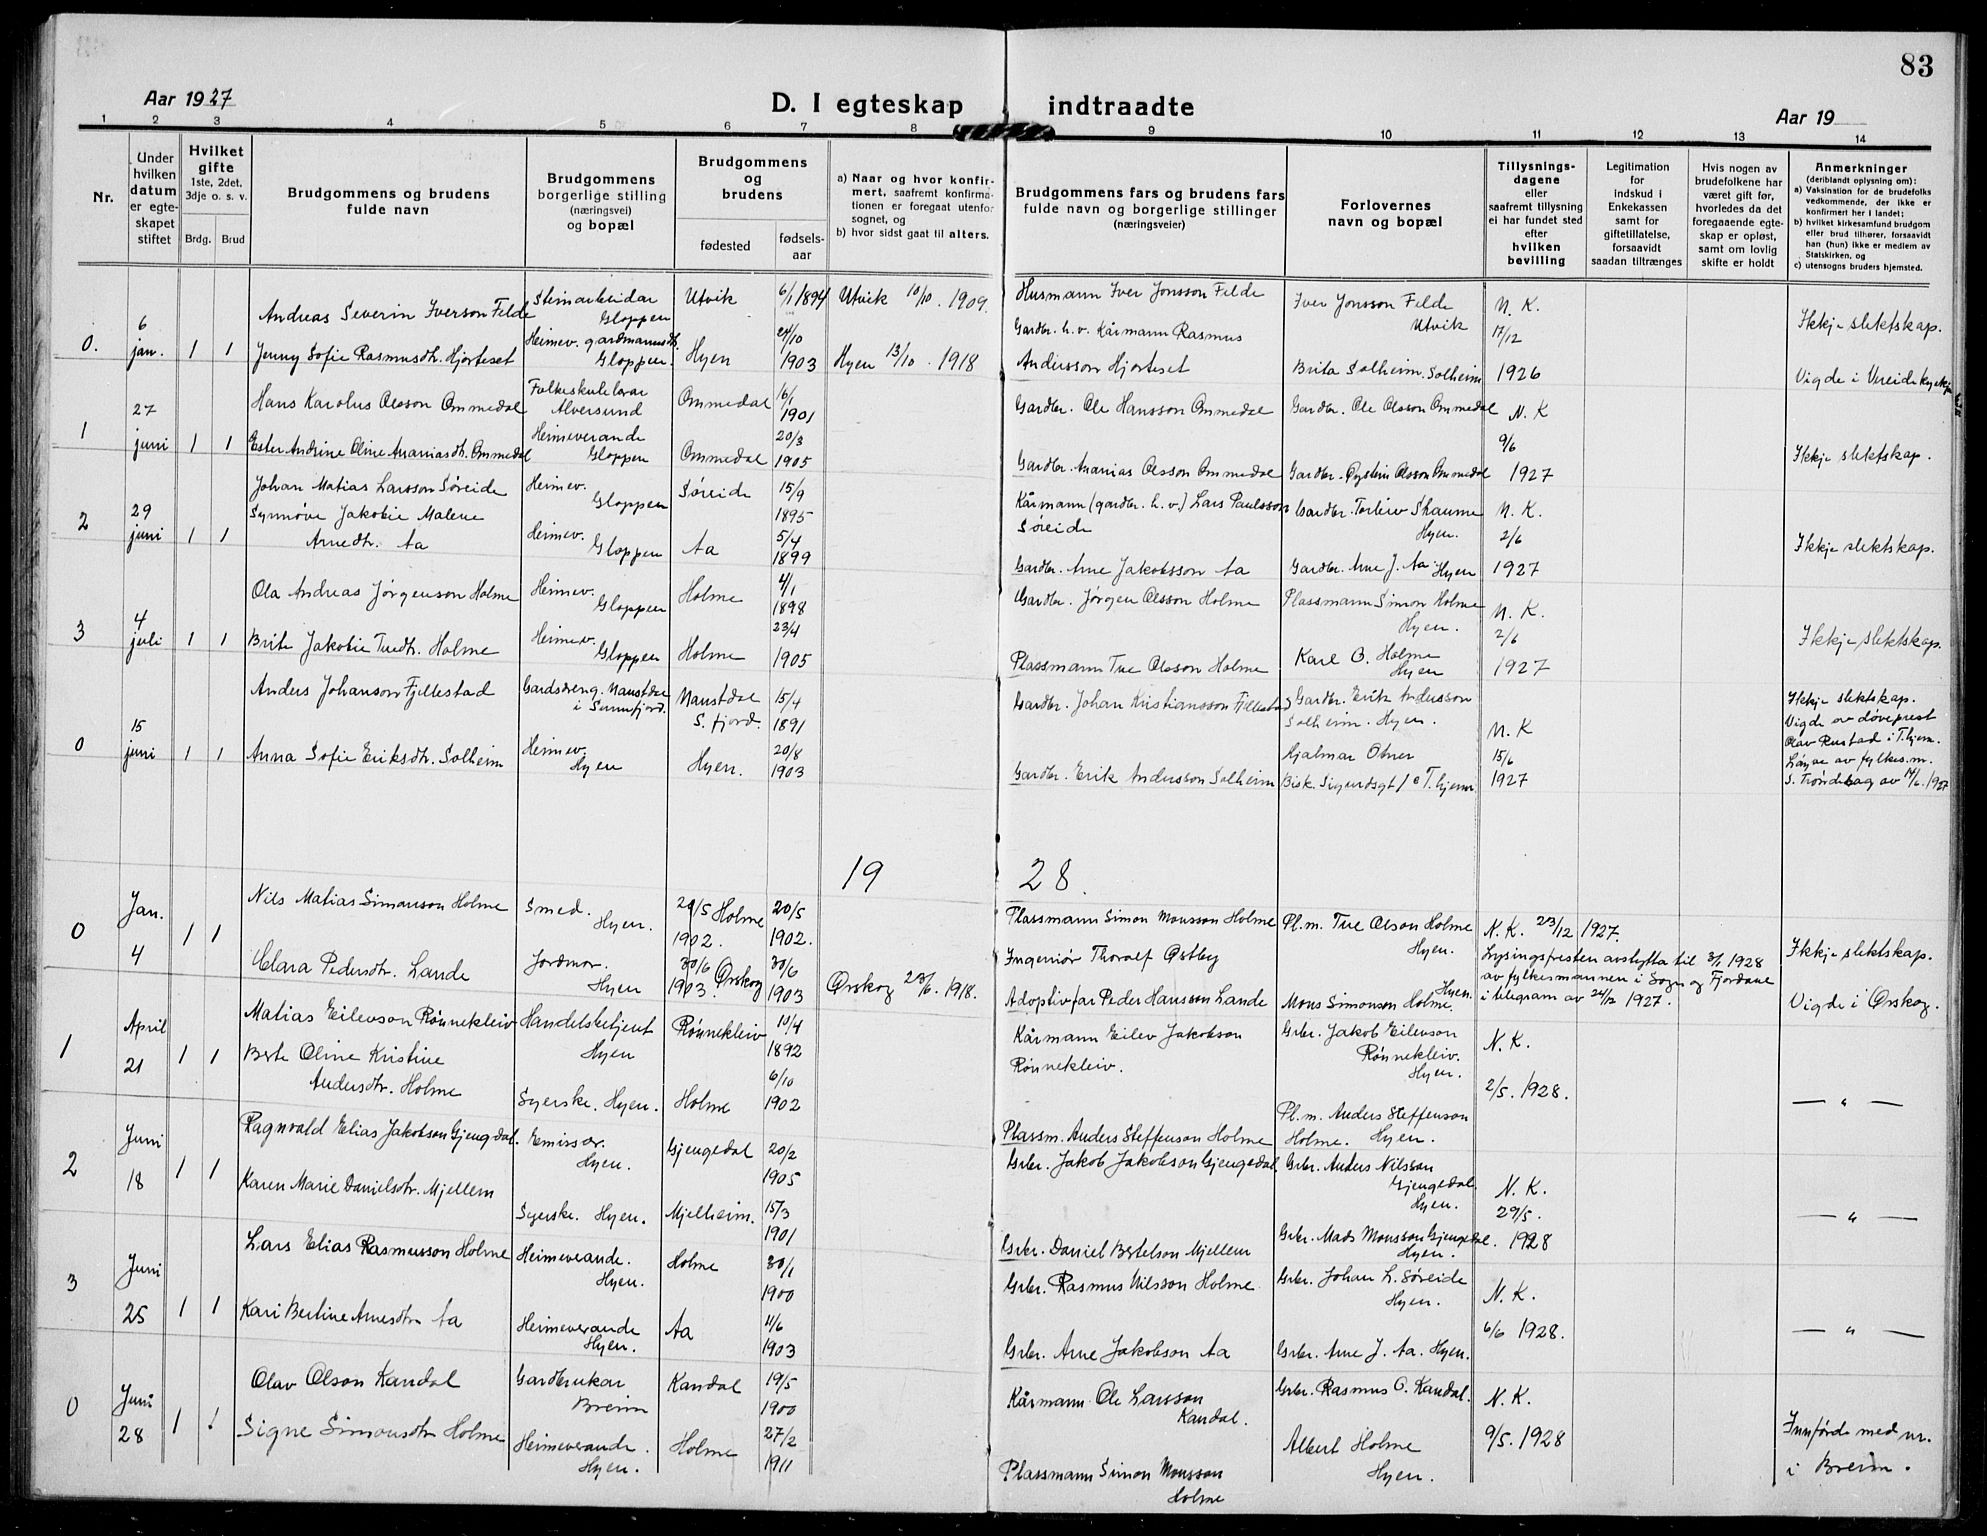 83
Aar 1927
D. I egteskap indtraadte
Aar 19
1 2 3 4 5 6 7 8 9 10 11 12 13 14
Nr.
Under hvilken datum er egteskapet stiftet
Hvilket gifte 1ste, 2det, 3dje o. s. v.
Brdg. Brud
Brudgommens og brudens fulde navn
Brudgommens borgerlige stilling (næringsvei) og bopæl
Brudgommens og brudens
fødested
fødsels-aar
a) Naar og hvor konfirmert, saafremt konfirmationen er foregaat utenfor sognet, og
b) hvor sidst gaat til alters.
Brudgommens fars og brudens fars fulde navn og borgerlige stillinger (næringsveier)
Forlovernes navn og bopæl
Tillysningsdagene eller saafremt tillysning ei har fundet sted efter hvilken bevilling
Legitimation for indskud i Enkekassen samt for giftetillatelse, forsaavidt saadan tiltrænges
Hvis nogen av brudefolkene har været gift før, hvorledes da det foregaaende egteskap er opløst, samt om lovlig skifte er holdt
Anmerkninger (deriblandt oplysning om):
a) Vaksination for de brudefolks vedkommende, der ikke er konfirmert her i landet;
b) hvilket kirkesamfund brudgom eller brud tilhører, forsaavidt han (hun) ikke er medlem av Statskirken, og
c) utensogns bruders hjemsted.
0. 6 jan. 1 1
Andreas Severin Iverson Felde Steinarbeidar Gloppen Utvik 6/1 1894 Utvik 10/10. 1909. Husmann Iver Jonsson Felde Iver Jonsson Felde Utvik N. K. 17/12 1926 Ikkje slektskap.
Jenny Sofie Rasmusdtr. Hjorteset Heimev. gardmannsdtr. Gloppen. Hyen 24/10 1903 Hyen 13/10. 1918 Gardbr. h. v. Kårmann Rasmus Andersson Hjorteset Brita Solheim. Solheim Vigde i Vereide kyrkja
1 27 juni 1 1
Hans Karolus Olsson Ommedal Folkeskulelærar Alversund Ommedal 6/1 1901 Gardbr. Ole Hansson Ommedal Gardbr. Ole Olsson Ommedal N. K 9/6 1927
Ester Andrine Oline Ananiasdtr. Ommedal Heimeverande Gloppen Ommedal 20/3 1905 Gardbr. Ananias Olsson Ommedal Gardbr. Øystein Olsson Ommedal Ikkje slektskap.
2 29 juni 1 1
Johan Matias Larsson Søreide Heimev. Gloppen Søreide 15/9 1895 Kårmann (gardbr. h. v.) Lars Paulsson Søreide Gardbr. Torleiv Skaume Hyen. N. K. 2/6 1927
Synnøve Jakobie Malene Arnedtr. Aa Heimev. Gloppen Aa 5/4 1899 Gardbr. Arne Jakobsson Aa Gardbr. Arne J. Aa Hyen Ikkje slektskap.
3 4 juli 1 1
Ola Andreas Jørgenson Holme Heimev. Gloppen Holme 4/1 1898 Gardbr. Jørgen Olsson Holme Plassmann Simon Holme Hyen. N. K. 2/6 1927
Brite Jakobie Tuedtr. Holme Heimev. Gloppen Holme 23/4 1905 Plassmann Tue Olsson Holme Karl O. Holme Hyen Ikkje slektskap.
0 15 juni 1 1
Anders Johanson Fjellestad Gardsdreng. Naustdal i Sunnfjord. Naustdal S. fjord. 15/4 1891 Gardbr. Johan Kristiansson Fjellestad Gardbr. Erik Andersson Solheim. Hyen. N. K 15/6 1927
Anna Sofie Eriksdtr. Solheim Heimev. Hyen Hyen. 20/8 1903 Gardbr. Erik Andersson Solheim Hjalmar Obner Bisk. Sigurdsgt 1 T. hjem.
Ikkje slektskap. Vigde av døveprest Olav Rustad i T. hjem. Løyve av fylkes.m. S. Trøndelag av 14/6. 1927
19 28.
0 Jan. 4 1 1
Nils Matias Simonson Holme Smed. Hyen. 20/5 1902. Holme 20/5 1902. Plassmann Simon Monsson Holme Pl.m. Tue Olson Holme Hyen. N. K. 23/12 1927. Lysingsfristen avstytta til 3/1. 1928 av fylkesmannen i Sogn og Fjordane i telegram av 24/12 1927. Ikkje slektskap.
Clara Pedersdtr. Lande Jordmor. Hyen 30/6 1903. Ørskog 30/6 1903 Ørskog 23/6. 1918. Ingeniør Thoralf Østby Adoptivfar Peder Hansson Lande Mons Simonson Holme. Hyen. Vigde i Ørskog.
1 April 21 1 1
Matias Eilevson Rönnekleiv Handelsbetjent Hyen Rönnekleiv 10/4 1892 Kårmann Eilev Jakobson Rönnekleiv. Grbr. Jakob Eilevson Rönnekleiv. Hyen. N. K. 2/5. 1928.
Berte Oline Kristine Andersdtr. Holme Syerske. Hyen. Holme 6/10 1902 Plassm. Anders Steffenson Holme Pl.m. Anders Steffenson Holme. Hyen. — " —
2 Juni 18 1 1
Ragnvald Elias Jakobson Gjengedal. Emissær. Hyen. Gjengedal 20/2 1905 Grbr. Jakob Jakobson Gjengedal. Grbr. Anders Nilsson Gjengedal. Hyen. N. K. 29/5. 1928
Karen Marie Danielsdtr. Mjellem Syerske. Hyen. Mjelheim. 15/3 1901 Grbr. Daniel Bertelson Mjellem Grbr. Mads Monsson Gjengedal. Hyen. — " —
3 Juni 25 1 1
Lars Elias Rasmusson Holme Heimeverande. Hyen. Holme 30/1 1900 Grbr. Rasmus Nilsson Holme Grbr. Johan L. Søreide Hyen. N. K. 6/6 1928.
Kari Bertine Arnesdtr Aa Heimeverande Hyen. Aa 4/6 1903 Grbr. Arne Jakobson Aa Grbr. Arne J. Aa. Hyen. — " —
0 Juni 28 1 1
Olav Olson Kandal Gardbrukar Breim Kandal 19/5 1900 Kårmann Ole Larsson Kandal. Grbr. Rasmus O. Kandal. N. K. 9/5. 1928
Signe Simonsdtr Holme Heimeverande. Hyen. Holme 27/2 1911 Plassmann Simon Monsson Holme Albert Holme Hyen. Innførde med nr. i Breim.